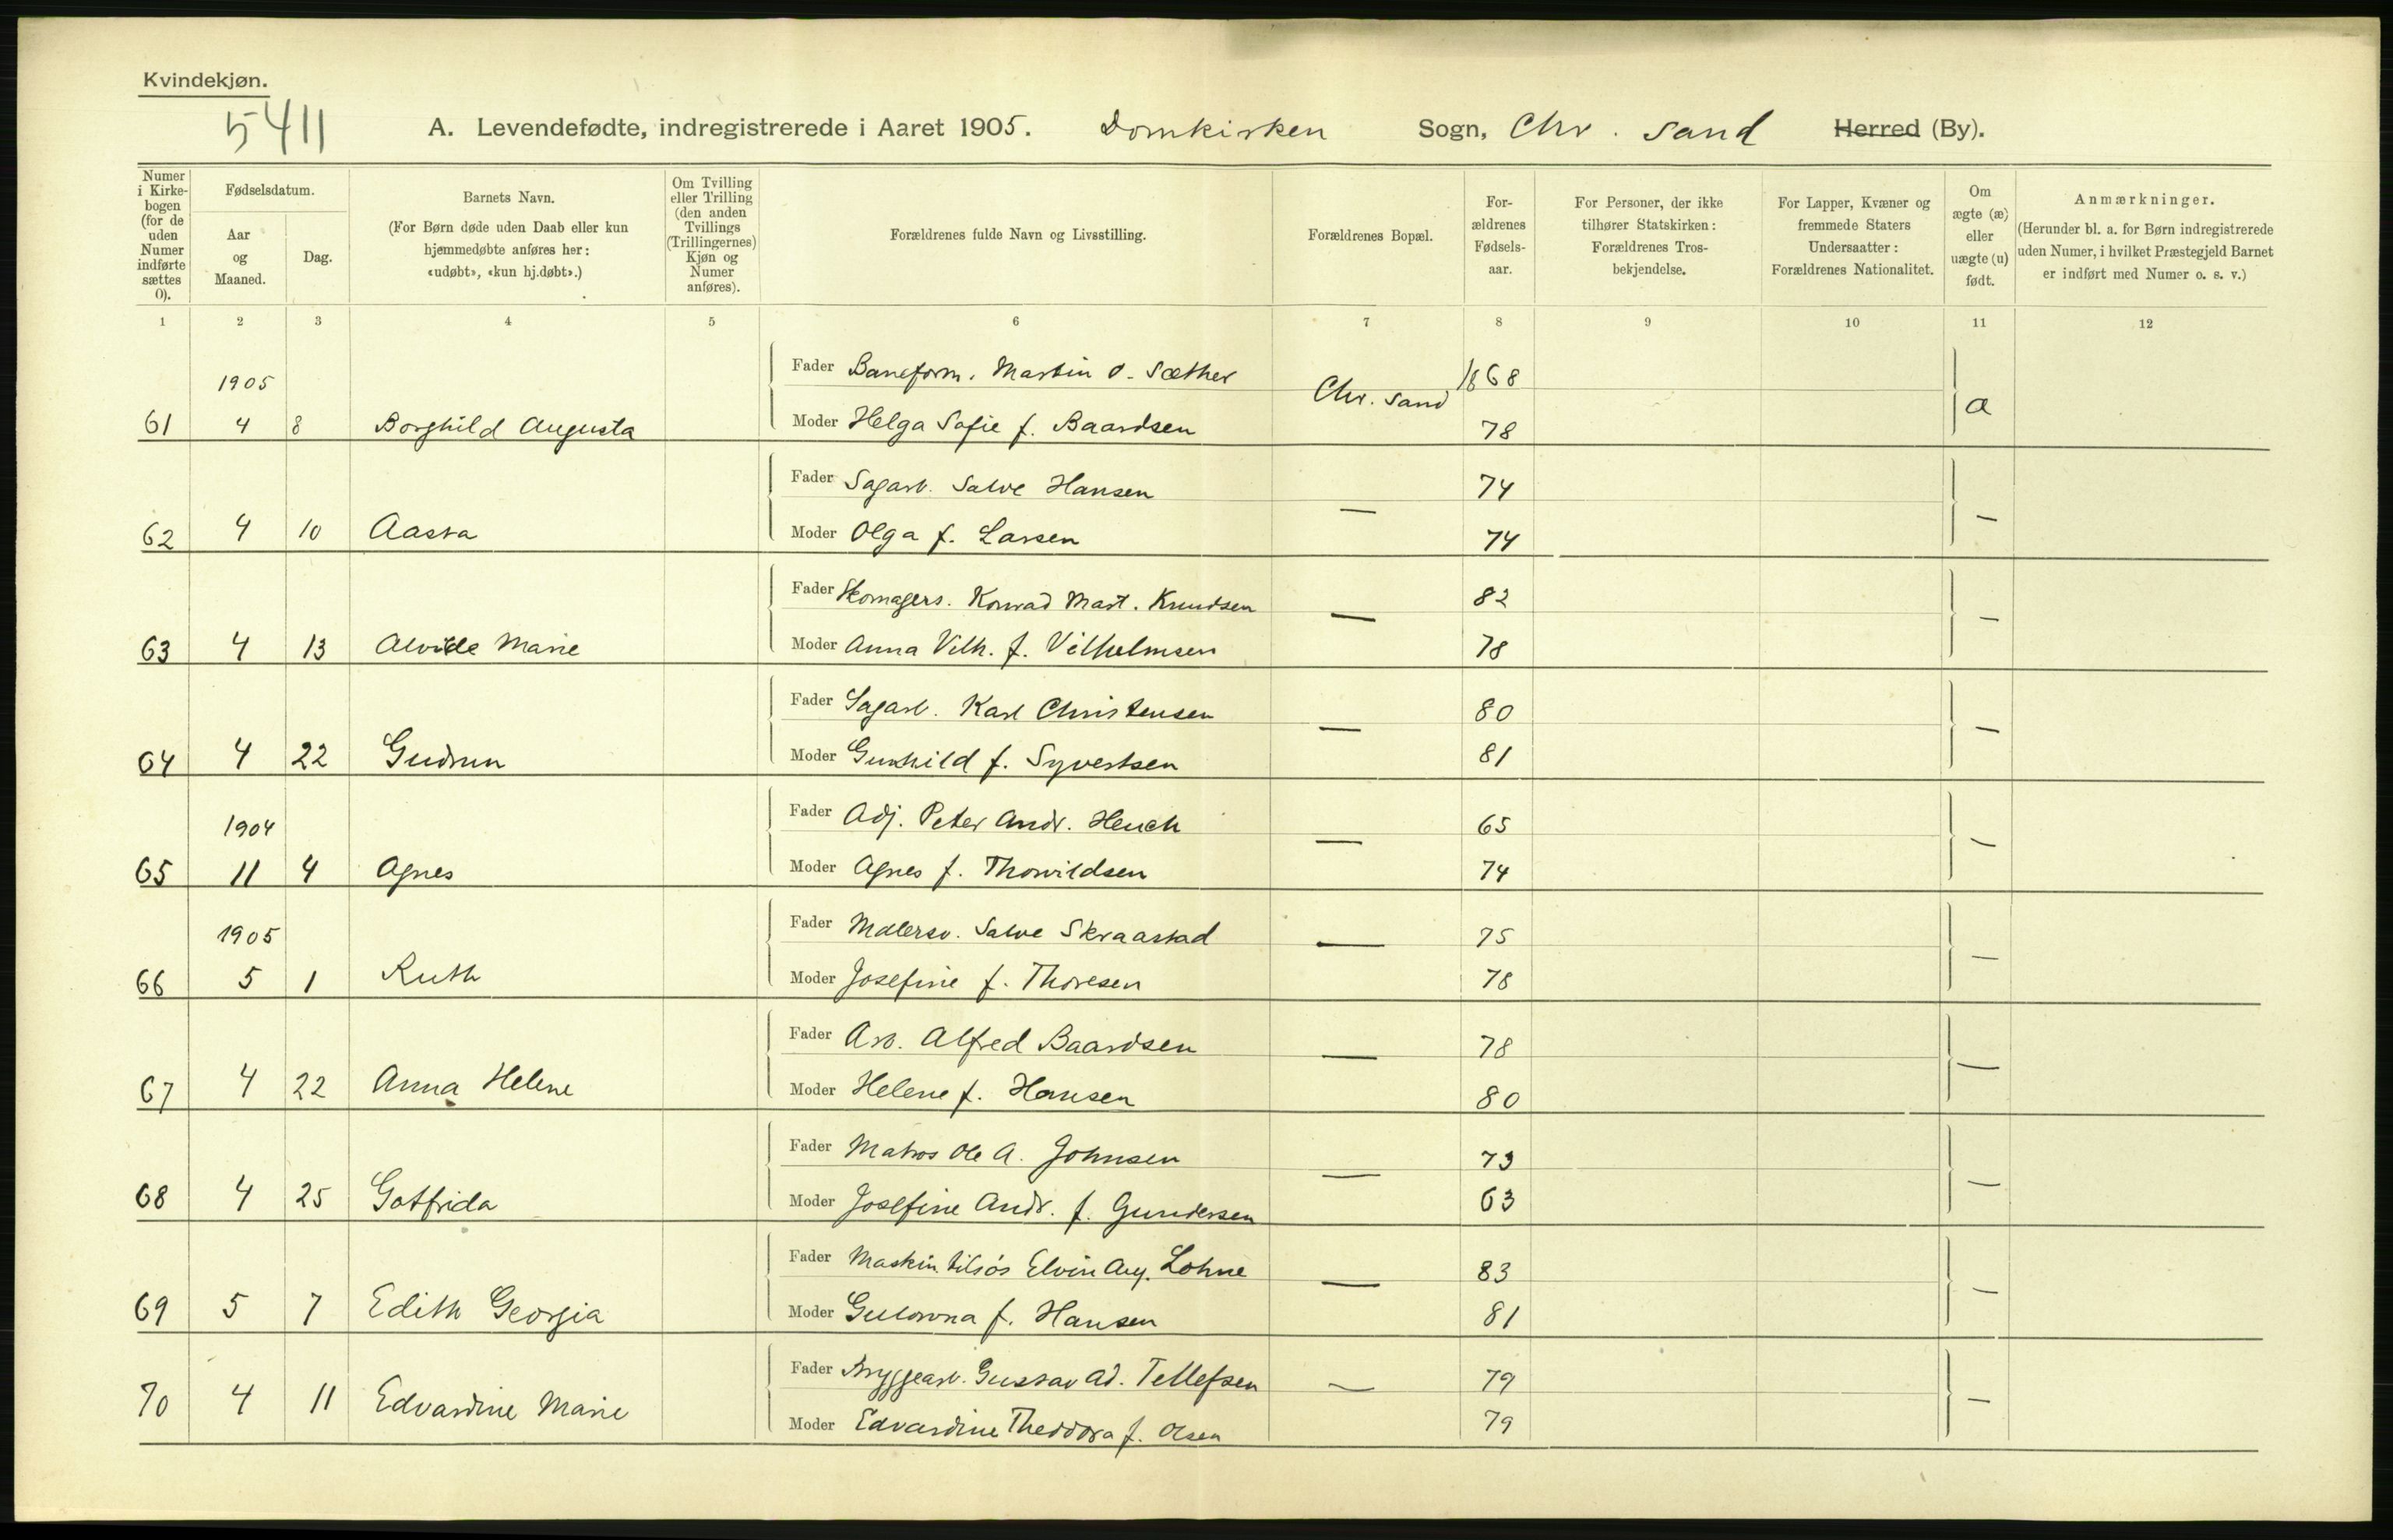 Kvindekjøn.
5411
A. Levendefødte, indregistrerede i Aaret 1905. Domkirken Sogn, Chr. sand Herred (By).
Numer i Kirkebogen (for de uden Numer indførte sættes 0).
Fødselsdatum.
Aar og Maaned.
Dag.
Barnets Navn.
(For Børn døde uden Daab eller kun hjemmedøbte anføres her: «udøbt», «kun hj.døbt».)
Om Tvilling eller Trilling (den anden Tvillings (Trillingernes) Kjøn og Numer anføres).
Forældrenes fulde Navn og Livsstilling.
Forældrenes Bopæl.
Forældrenes Fødselsaar.
For Personer, der ikke tilhører Statskirken: Forældrenes Trosbekjendelse.
For Lapper, Kvæner og fremmede Staters Undersaatter: Forældrenes Nationalitet.
Om ægte (æ) eller uægte (u) født.
Anmærkninger.
(Herunder bl. a. for Børn indregistrerede uden Numer, i hvilket Præstegjeld Barnet er indført med Numer o. s. v.)
1 2 3 4 5 6 7 8 9 10 11 12
1905 Fader Baneform. Martin O. Sæther Chr. sand 1868 æ
61 4 8 Borghild Augusta Moder Helga Sofie f. Baardsen 78
Fader Sagarb. Salve Hansen — 74 —
62 4 10 Aasta Moder Olga f. Larsen 74
Fader Skomagers. Konrad Mart. Knudsen — 82 —
63 4 13 Alvilde Marie Moder Anna Vilh. f. Vilhelmsen 78
Fader Sagarb. Karl Christensen — 80 —
64 4 22 Gudrun Moder Gunhild f. Syvertsen 81
1904 Fader Adj. Peter Andr. Heuch — 65 —
65 11 4 Agnes Moder Agnes f. Thorvildsen 74
1905 Fader Malersv. Salve Skraastad — 75 —
66 5 1 Ruth Moder Josefine f. Thoresen 78
Fader Arb. Alfred Baardsen — 78 —
67 4 22 Anna Helene Moder Helene f. Hansen 80
Fader Matros Ole A. Johnsen — 73 —
68 4 25 Gotfrida Moder Josefine Andr. f. Gundersen 63
Fader Maskin Elvin Aug. Lohne — 83 —
69 5 7 Edith Georgia Moder Gulowna f. Hansen 81
Fader Bryggearb. Gustav Ad. Tellefsen — 79 —
70 4 11 Edvardine Marie Moder Edvardine Theodora f. Olsen 79